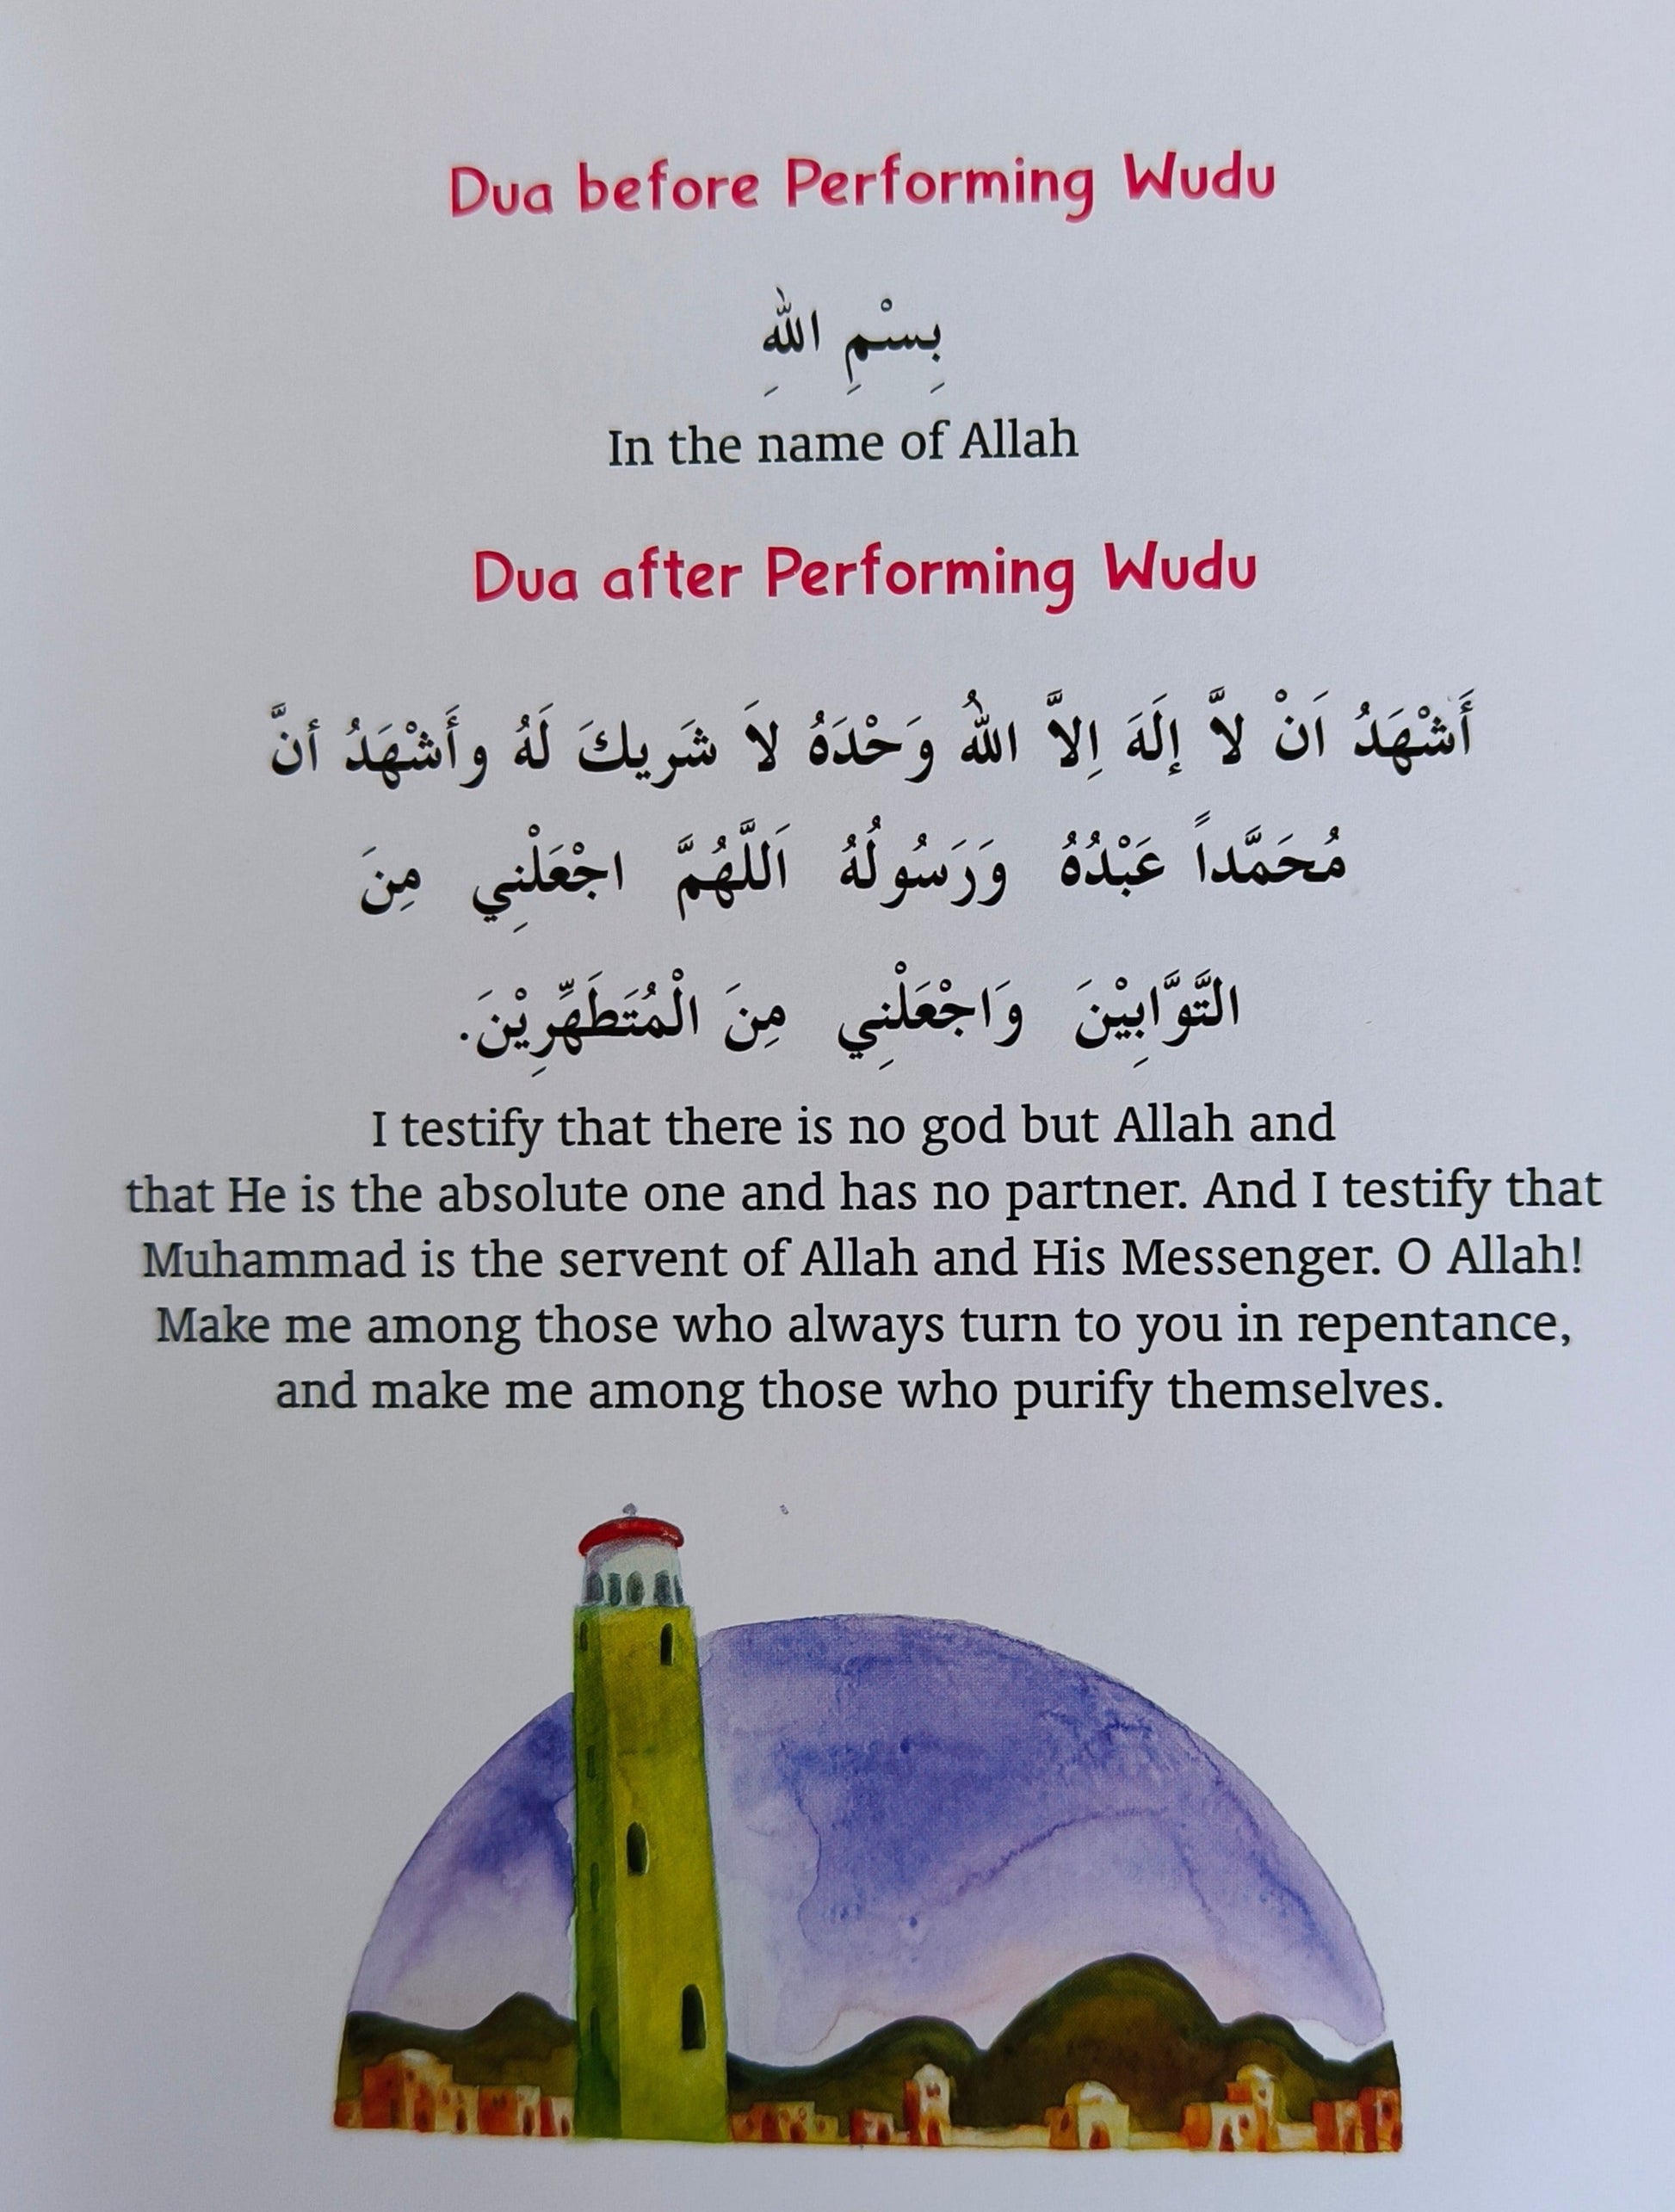 Dua before Performing Wudu
بِسْمِ اللهِ
In the name of Allah
Dua after Performing Wudu
أَشْهَدُ اَنْ لاَّ إِلَهَ اِلاَّ اللهُ وَحْدَهُ لاَ شَرِيكَ لَهُ وأَشْهَدُ أنَّ
مُحَمَّداً عَبْدُهُ وَرَسُولُهُ اَللَّهُمَّ اجْعَلْنِي مِنَ
التَّوَّابِيْنَ وَاجْعَلْنِي مِنَ الْمُتَطَهِّرِيْنَ.
I testify that there is no god but Allah and
that He is the absolute one and has no partner. And I testify that
Muhammad is the servent of Allah and His Messenger. O Allah!
Make me among those who always turn to you in repentance,
and make me among those who purify themselves.